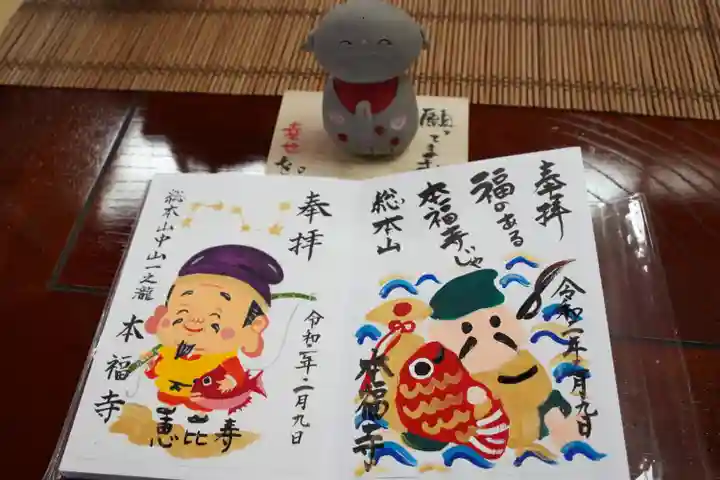 願ってます
幸せを。
奉拝
総本山中山一之瀧
本福寺
令和二年二月九日
恵比寿
奉拝
福のある
本福寺じゃ
総本山
本福寺
令和二年二月九日